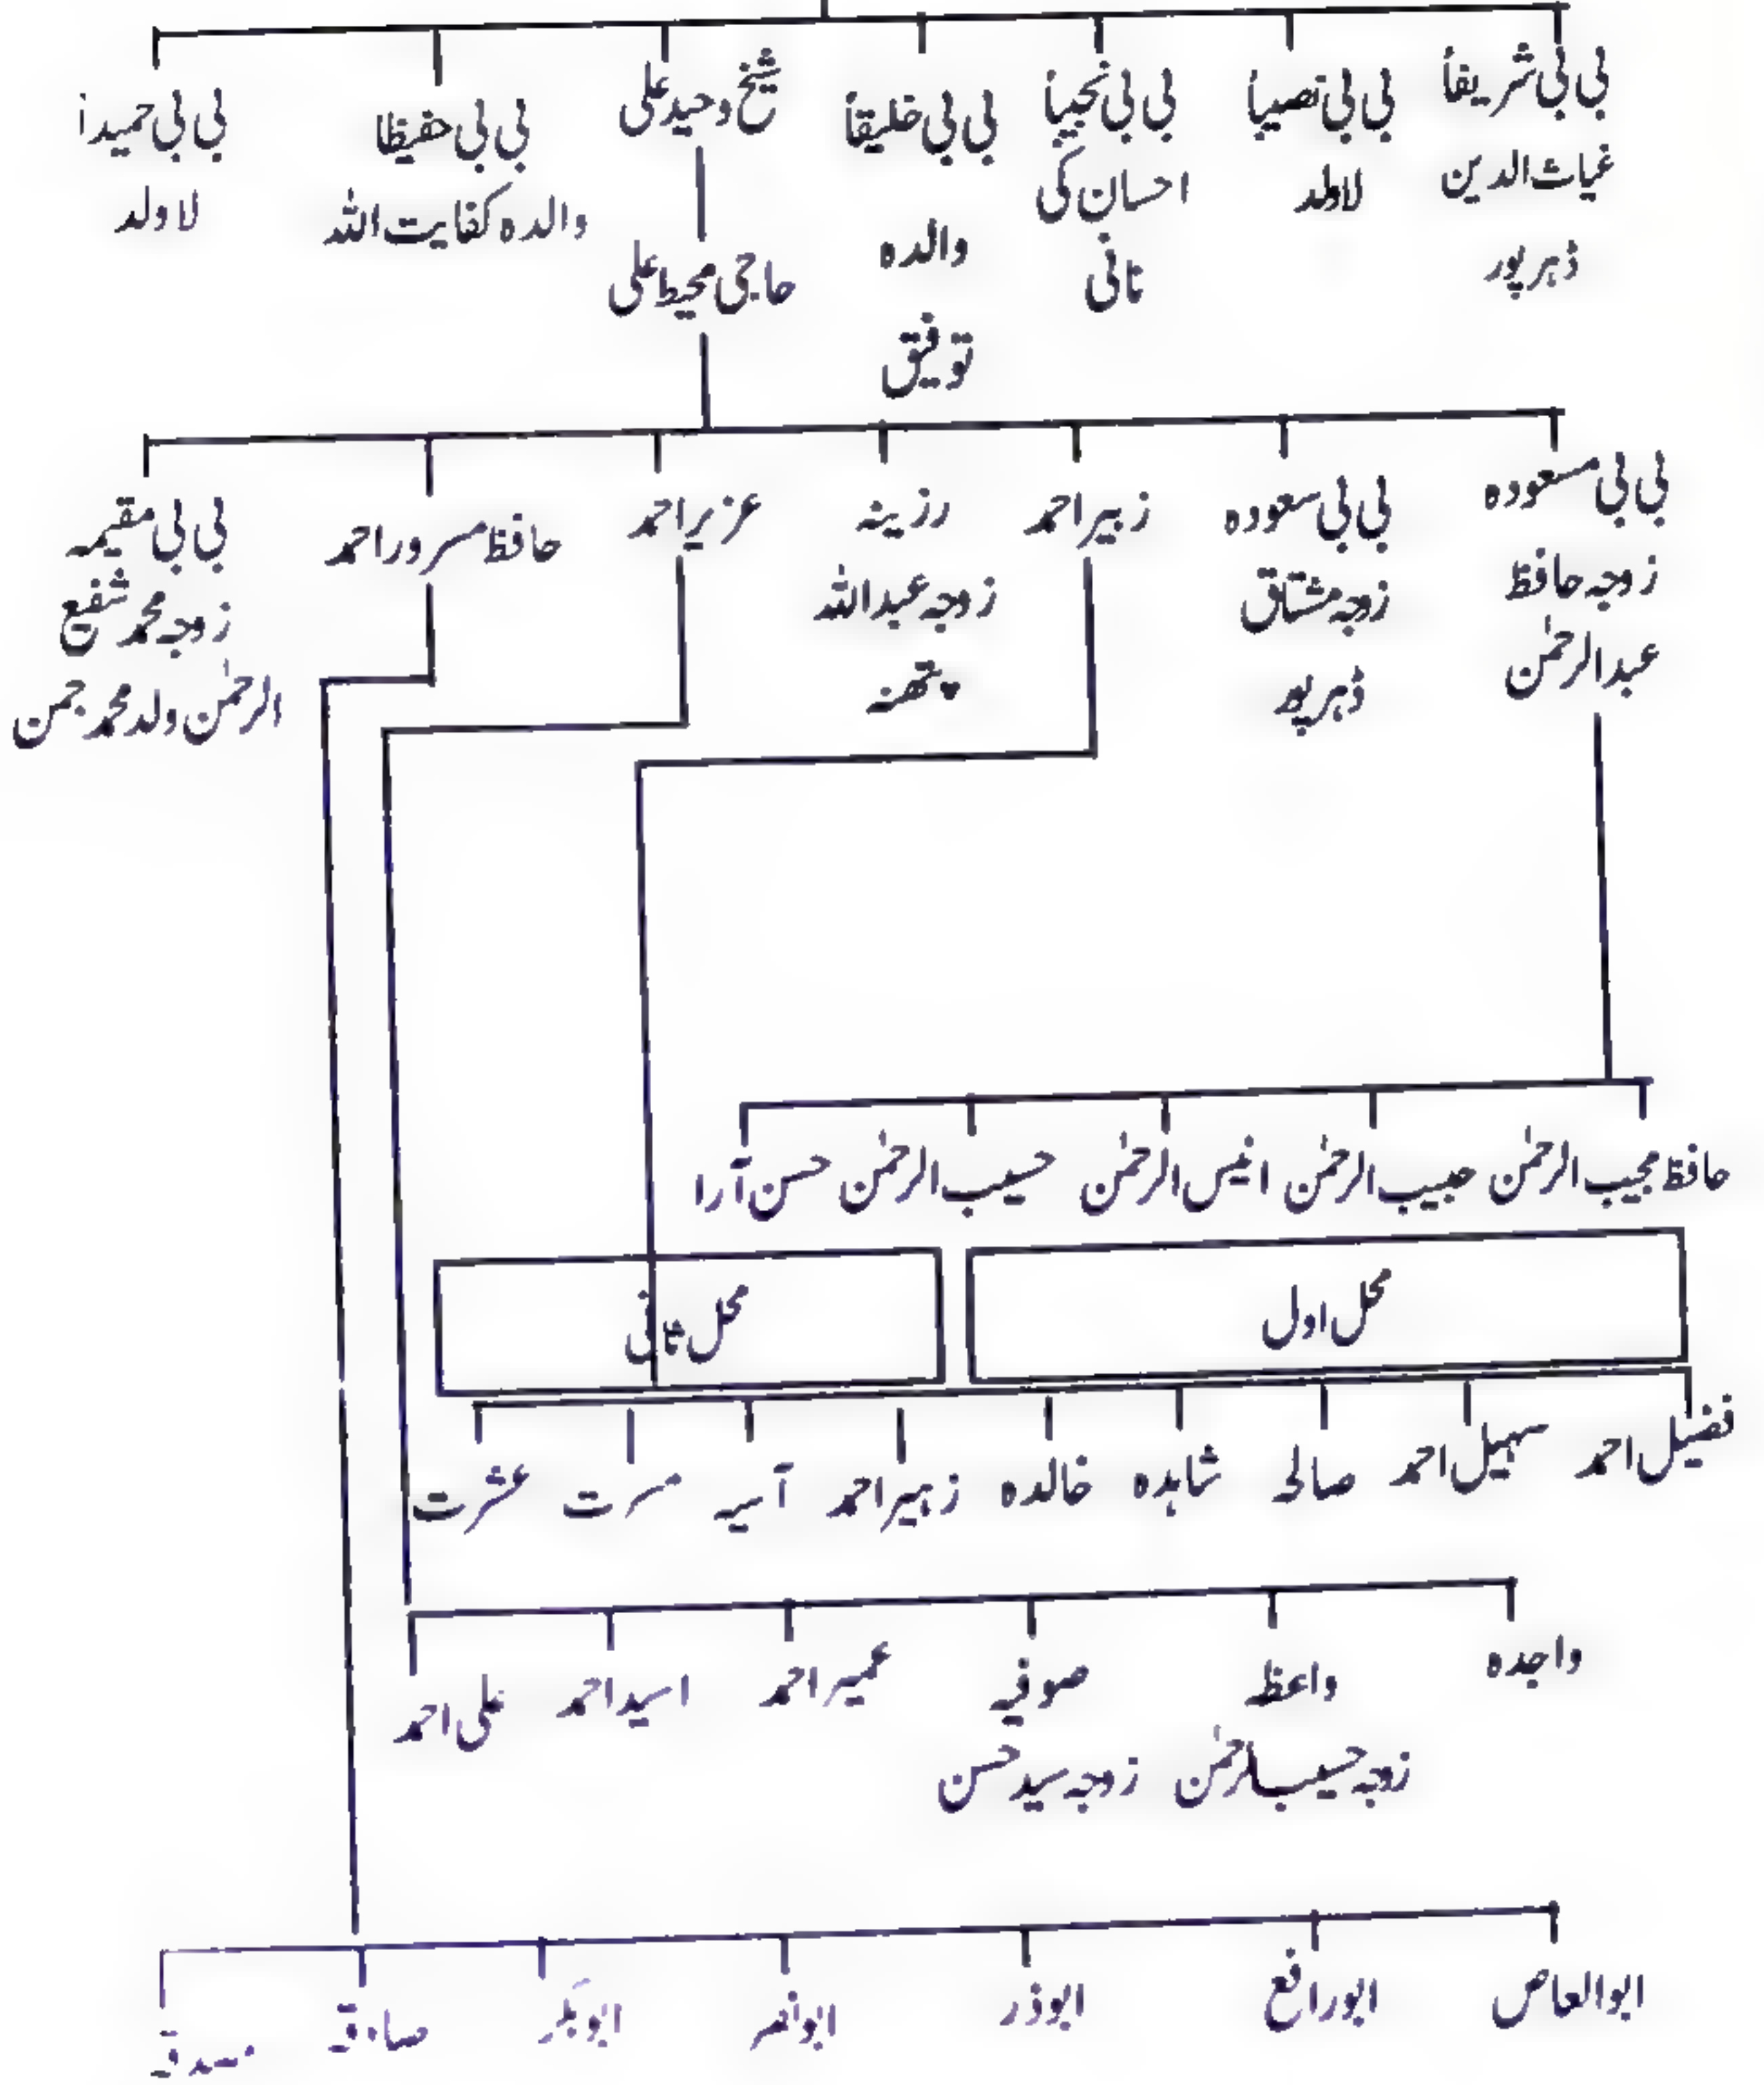 بی بی شریفاً
غیاث الدین
ڈہر پور
بی بی نصیباً
لاولد
بی بی نجیباً
احسان کی
نانی
بی بی خلیقاً
والدہ
توفیق
شیخ وحید علی
حاجی محیط علی
بی بی حفیظا
والدہ کفایت اللہ
بی بی حمیداً
لا ولد
بی بی مسعودہ
زوجہ حافظ
عبدالرحمٰن
بی بی سعودہ
زوجہ مشتاق
ڈہر پور
زبیر احمد
رزینہ
زوجہ عبداللہ
پتھنہ
عزیر احمد
حافظ مسرور احمد
بی بی مقیمہ
زوجہ محمد شفیع
الرحمٰن ولد محمد جمن
حافظ مجیب الرحمٰن
حبیب الرحمٰن
انیس الرحمٰن
حسیب الرحمٰن
حسن آرا
محل اول
محل ثانی
فضیل احمد
سہیل احمد
صالحہ
شاہدہ
خالدہ
زہیر احمد
آسیہ
مسرت
عشرت
واجدہ
واعظہ
زوجہ حسیب الرحمٰن
صوفیہ
زوجہ سید حسن
عمیر احمد
اسید احمد
علی احمد
ابوالعاص
ابورافع
ابوذر
ابونصر
ابوبکر
صادقہ